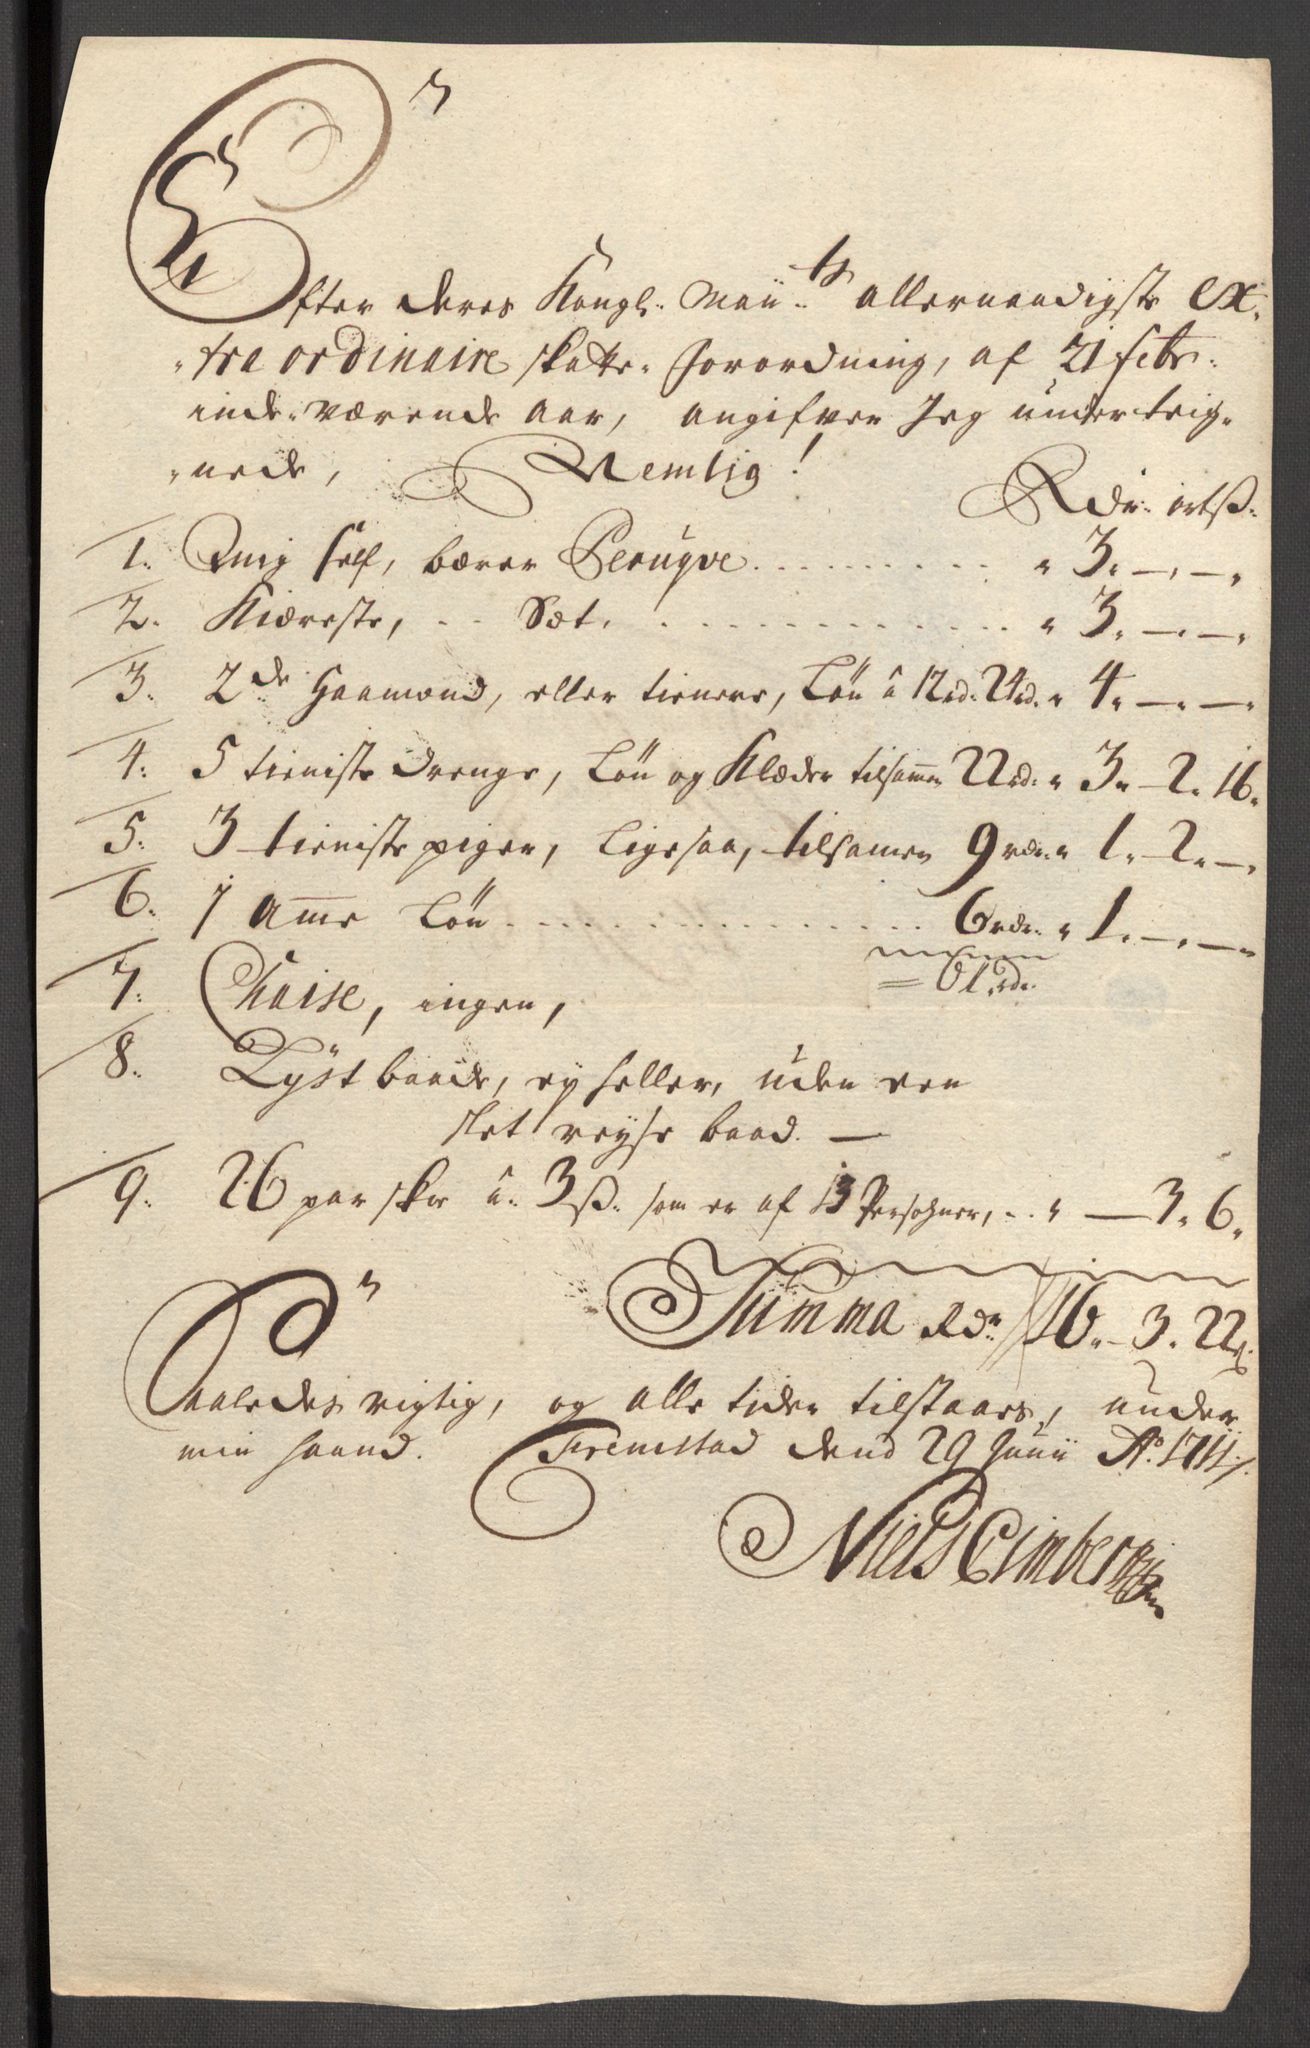 Efter deres Kongl: Maii: ts allernaadigste Ex-
tra ordinaire skatte-forordning, af 21 febr:
inde-værende aar, angifver Jeg underteig-
nede, Nemlig!
Rdr: ort ß:
1. Mig self, bærer Peruqve . . . . . . . . . " 3. —. —.
2. Kiæreste, - - Sæt. . . . . . . . . . . " 3. —. —.
3. 2de gaamond, eller tienere, Løn â 12rd: 24rd. " 4. —. —.
4. 5 tieniste drenge, Løn og Klæder tilsamm 22rd. " 3. 2. 16.
5. 3 tieniste piger, ligesaa, tilsamen 9 rdr. " 1. 2. —.
6. 1 Amme Løn . . . . . . . . . . . . 6 rdr. " 1. —. —.
= 61 rdr.
7. Chaise, ingen,
8. Lyst baade, ey heller, uden een
slet reyse baad. —
9. 26 par skoe â. 3 ß. som er af 13 Persohner, . . " — 3. 6.
Summa Rdr 16. 3. 22 ß.
Saaledes rigtig, og alle tider tilstaars, under
min haand. dend 29 Junii Ao. 1711.
Niels Cimberg